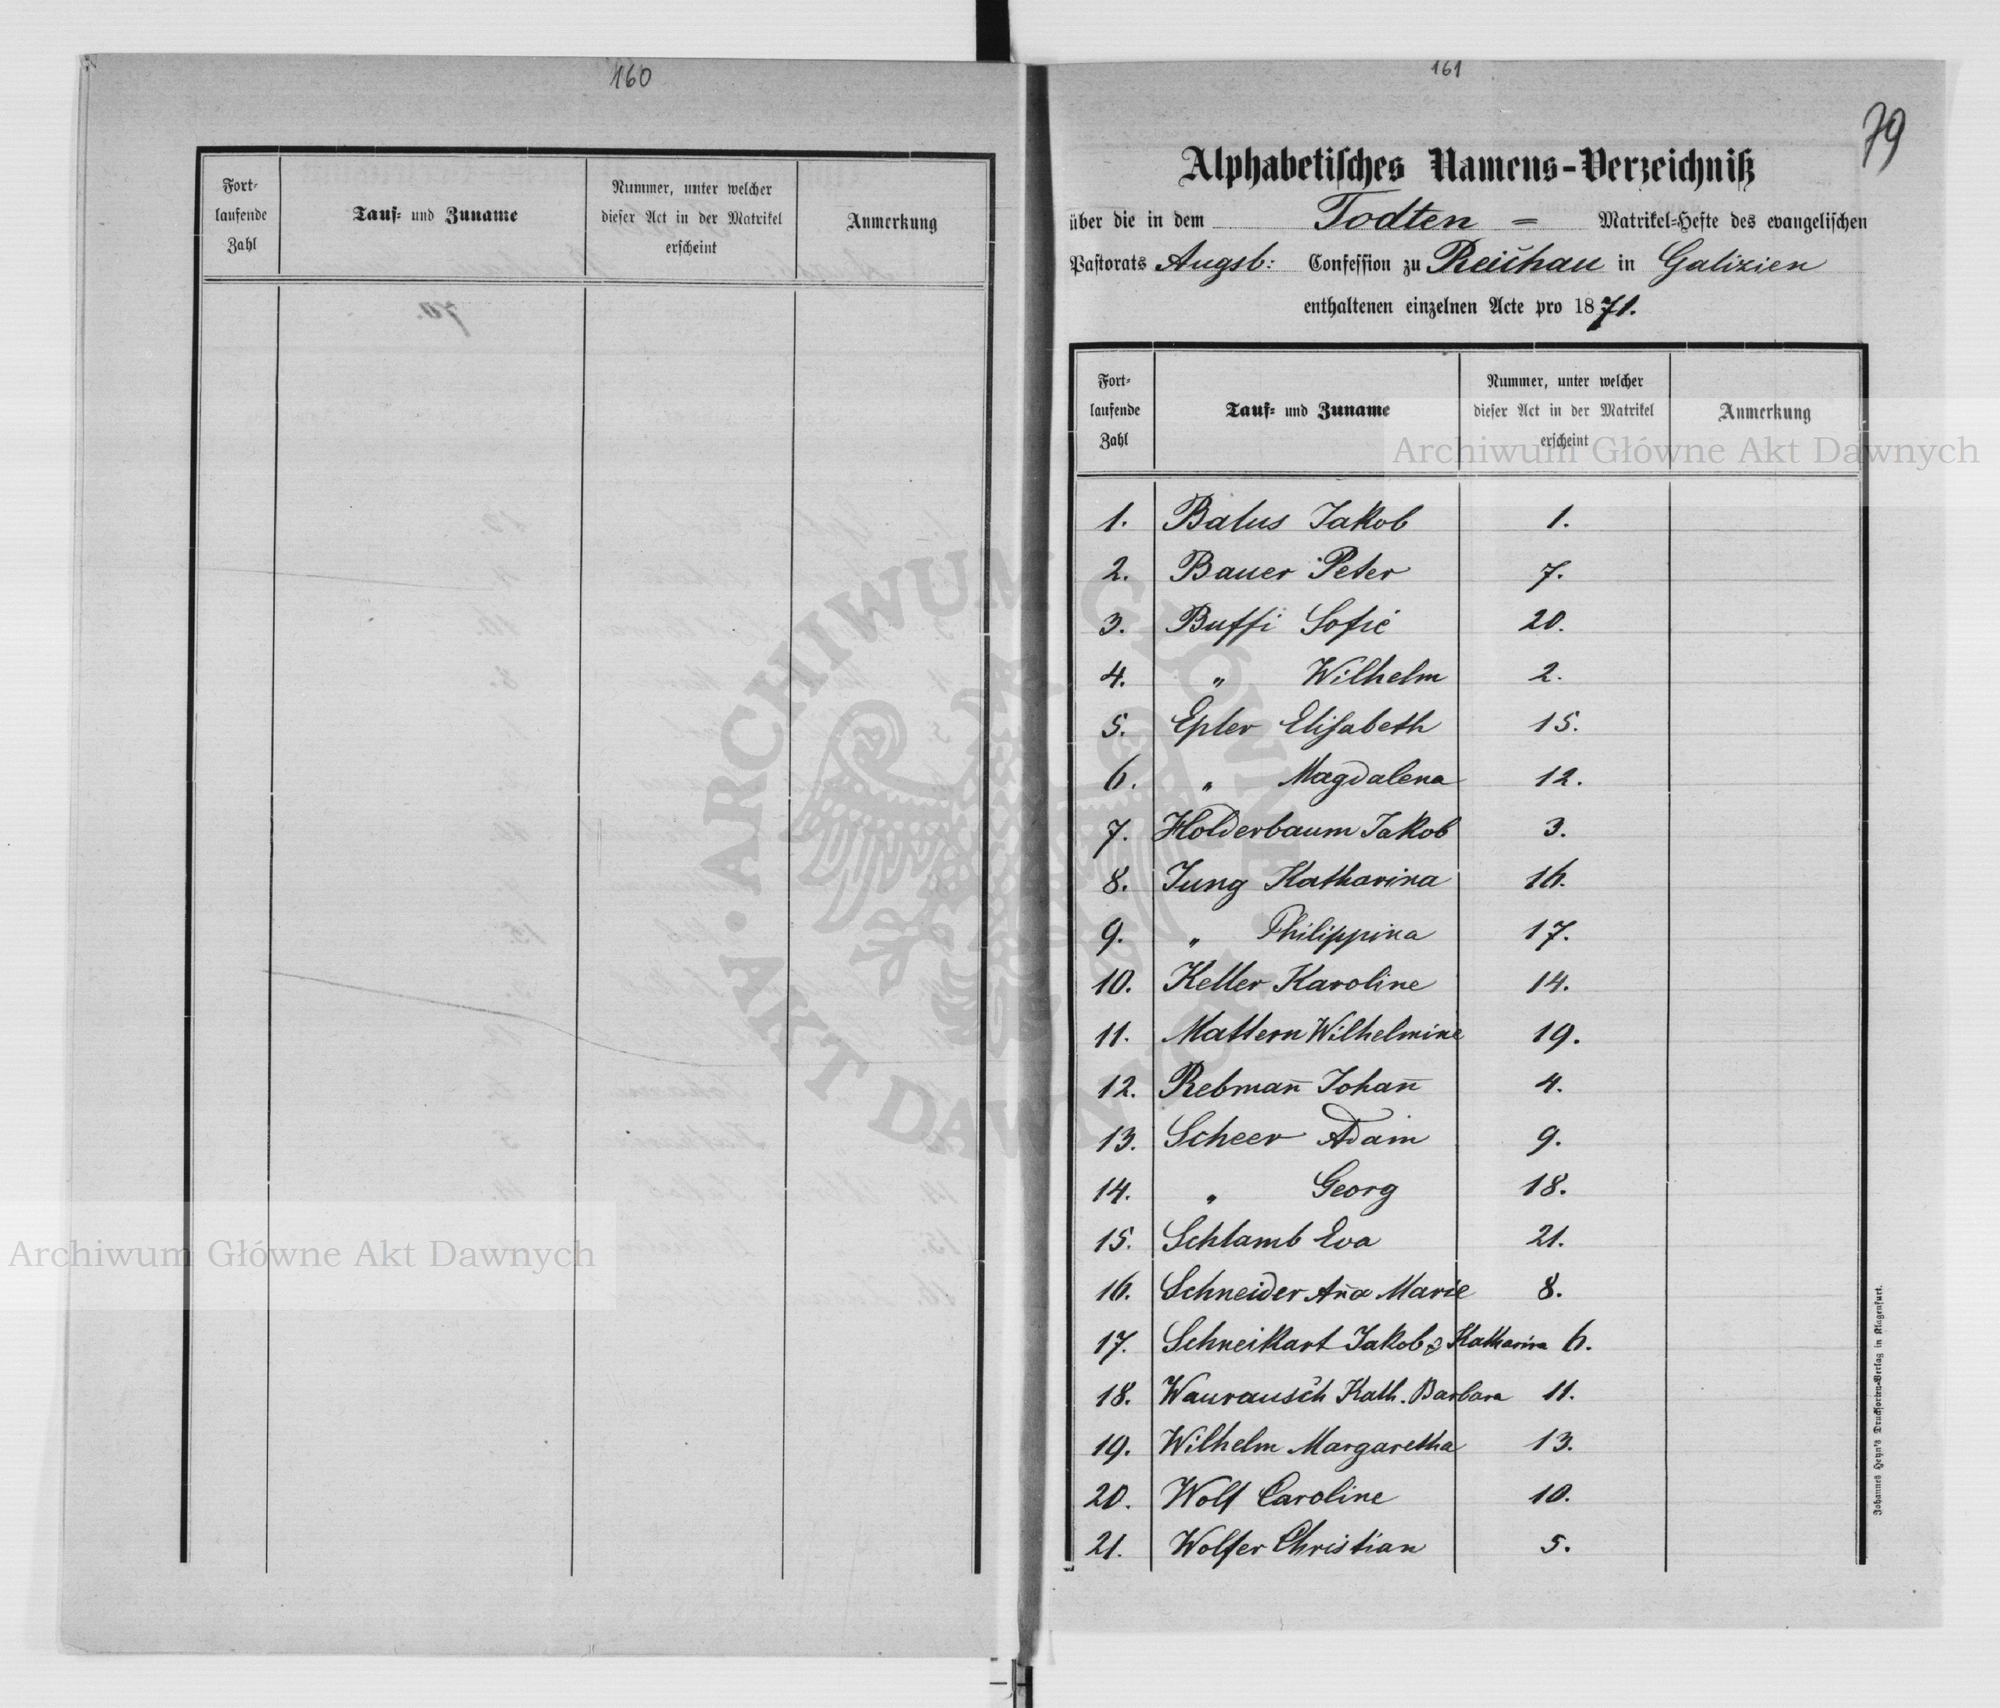 160
Fort-
laufende
Zahl
Tauf= und Zuname
Nummer, unter welcher
dieser Act in der Matrikel
erscheint
Anmerkung
161
79
Alphabetisches Namens-Verzeichniß
über die in dem Todten = Matrikel=Hefte des evangelischen
Pastorats Augsb: Confession zu Reichau in Galizien
enthaltenen einzelnen Acte pro 1871.
Fort-
laufende
Zahl
Tauf= und Zuname
Nummer, unter welcher
dieser Act in der Matrikel
erscheint
Anmerkung
1. Balus Jakob 1.
2. Bauer Peter 7.
3. Buffi Sofie 20.
4. " Wilhelm 2.
5. Epler Elisabeth 15.
6. " Magdalena 12.
7. Holderbaum Jakob 3.
8. Jung Katharina 16.
9. " Philippina 17.
10. Keller Karoline 14.
11. Mattern Wilhelmine 19.
12. Rebman̄ Johan̄ 4.
13. Scheer Adam 9.
14. " Georg 18.
15. Schlamb Eva 21.
16. Schneider An̄a Marie 8.
17. Schneikart Jakob & Katharina 6.
18. Waurausch Kath. Barbara 11.
19. Wilhelm Margaretha 13.
20. Wolf Caroline 10.
21. Wolfer Christian 5.
Johannes Heyn's Drucksorten-Verlag in Klagenfurt.
Archiwum Główne Akt Dawnych
Archiwum Główne Akt Dawnych
ARCHIWUM GŁÓWNE
AKT DAWNYCH